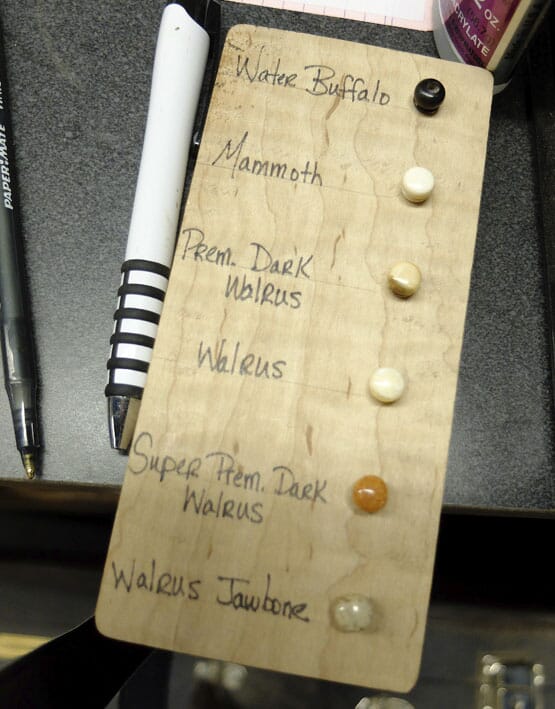 Water Buffalo
Mammoth
Prem. Dark
Walrus
Walrus
Super Prem. Dark
Walrus
Walrus Jawbone
PAPER MATE
OZ.
CRYLATE